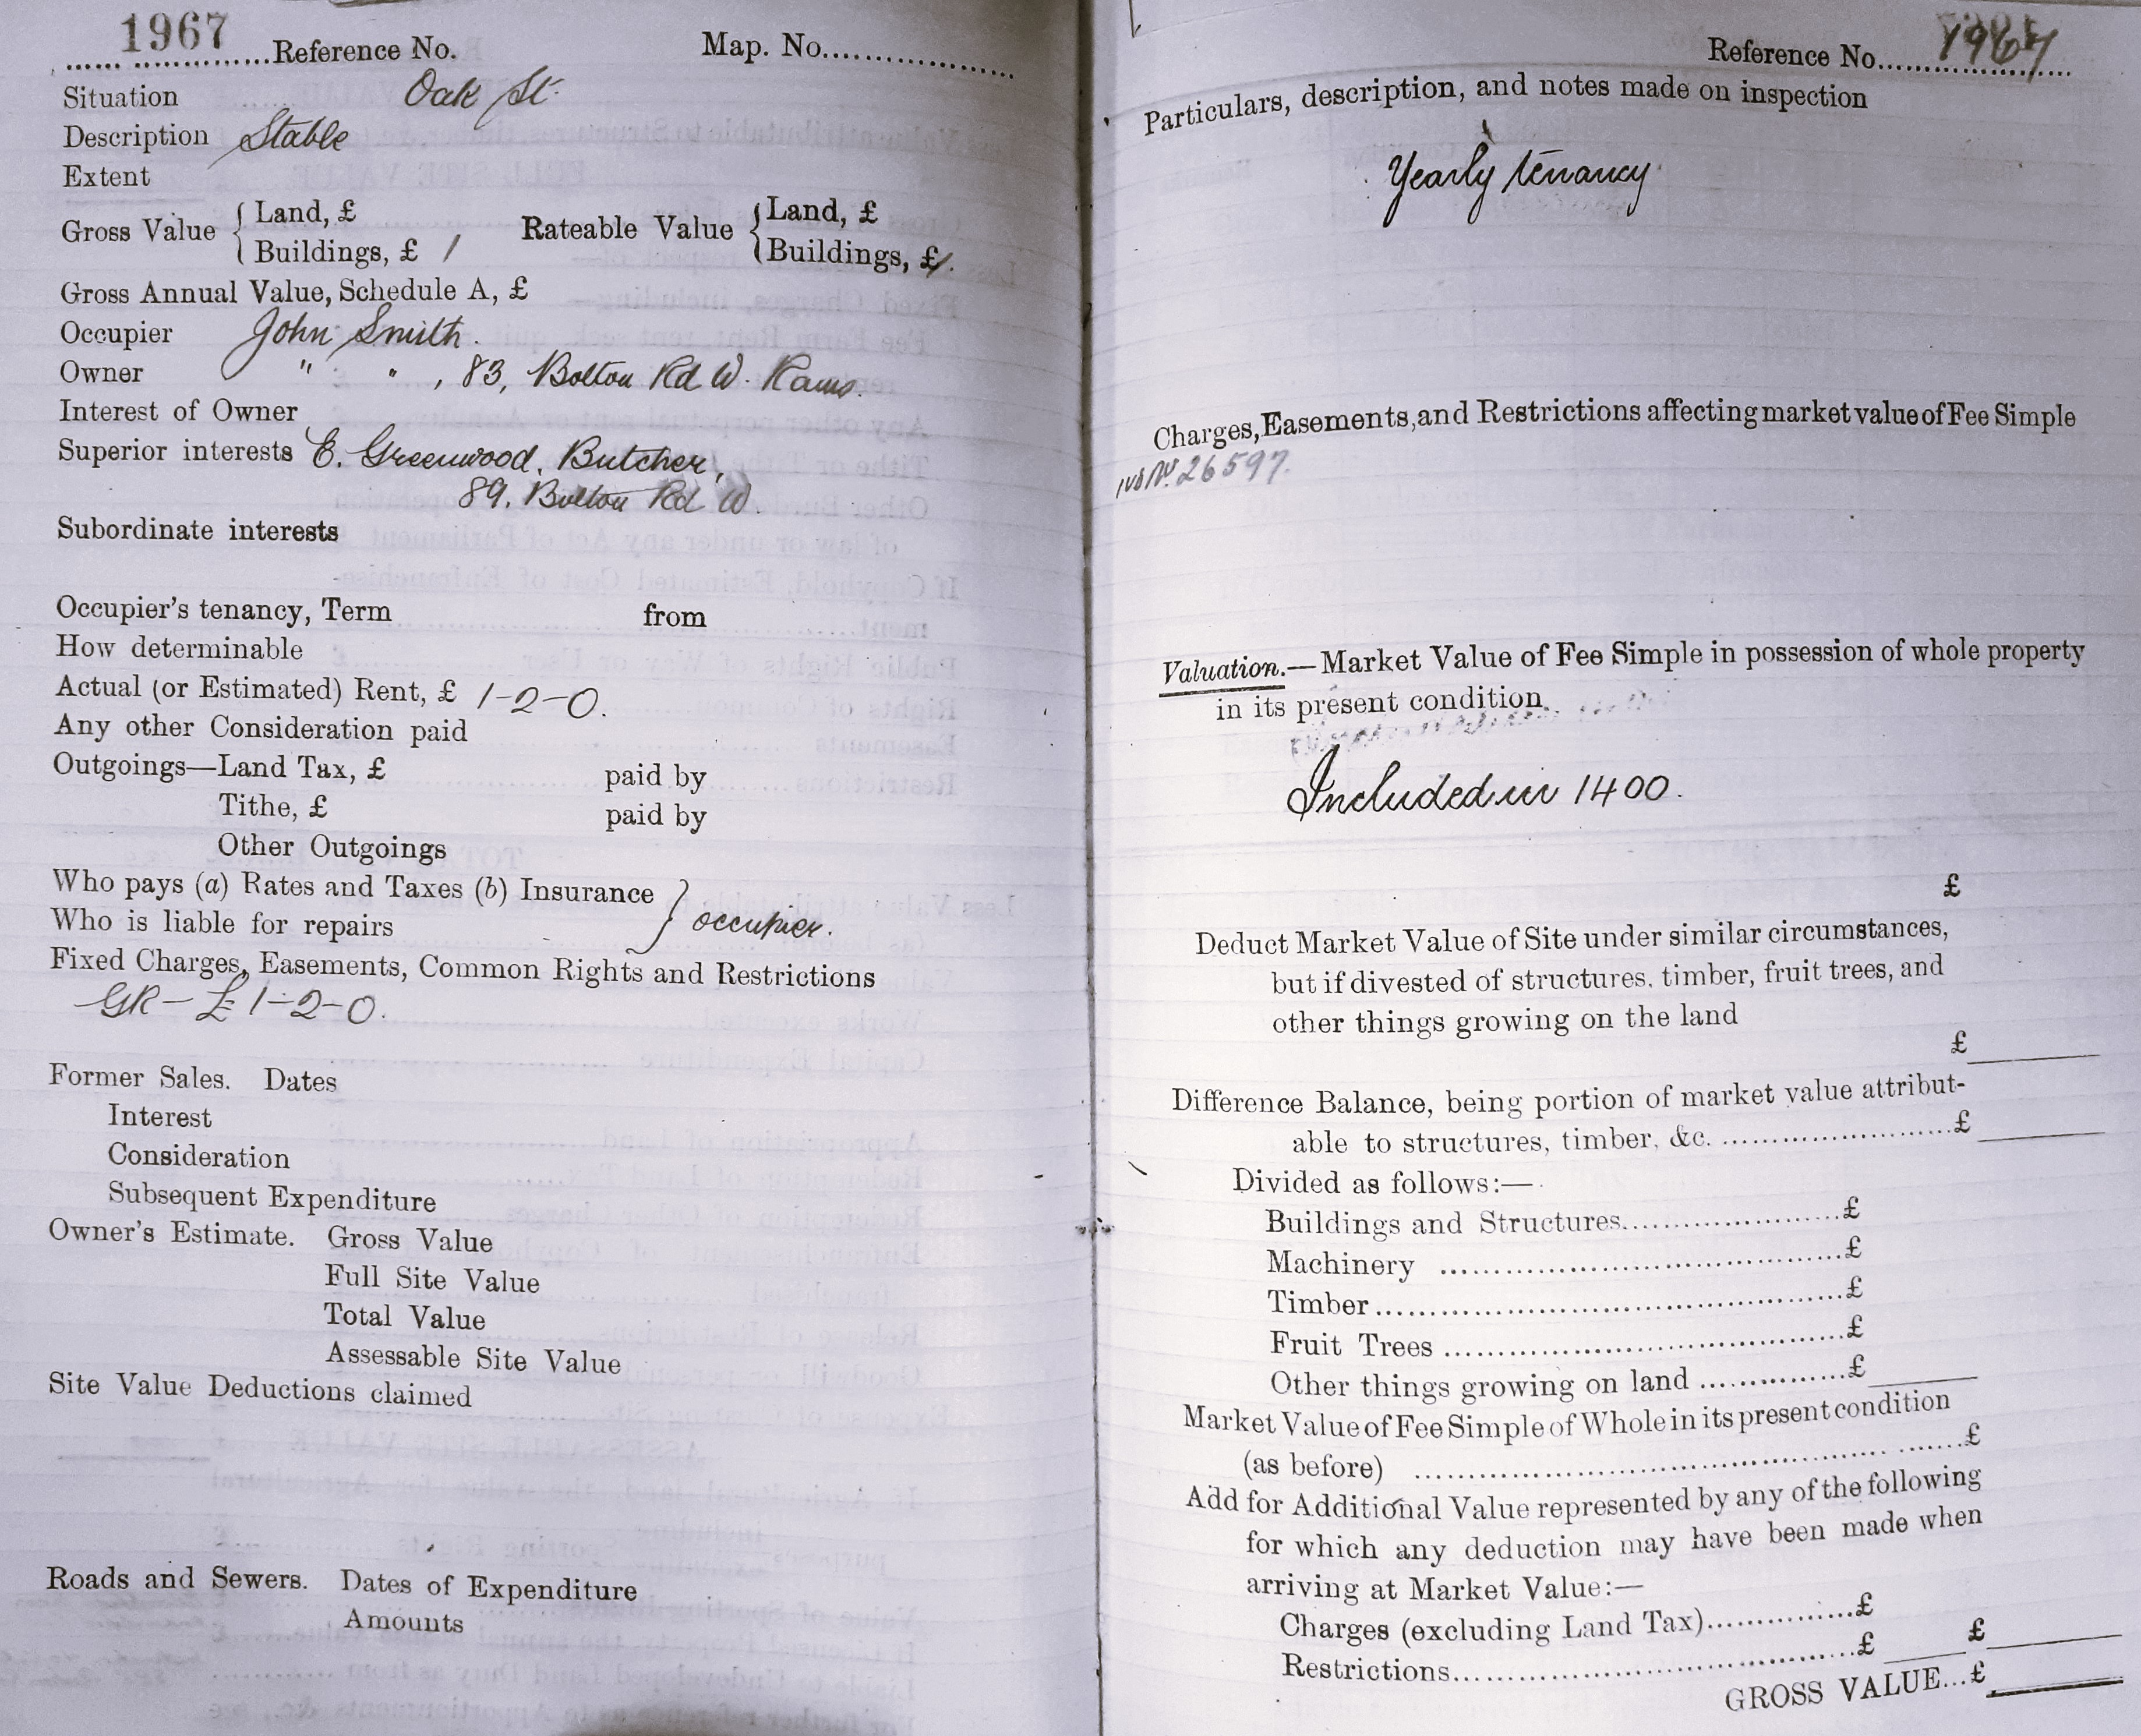 1967 Reference No. Map. No.
Situation Oak St.
Description Stable
Extent
Gross Value { Land, £ Rateable Value { Land, £
Buildings, £ 1 Buildings, £ 1.
Gross Annual Value, Schedule A, £
Occupier John Smith.
Owner " " , 83, Bolton Rd W. Rams.
Interest of Owner
Superior interests E. Greenwood, Butcher,
89. Bolton Rd W.
Subordinate interests
Occupier's tenancy, Term from
How determinable
Actual (or Estimated) Rent, £ 1-2-0.
Any other Consideration paid
Outgoings—Land Tax, £ paid by
Tithe, £ paid by
Other Outgoings
Who pays (a) Rates and Taxes (b) Insurance }
Who is liable for repairs occupier.
Fixed Charges, Easements, Common Rights and Restrictions
GR - £1-2-0.
Former Sales. Dates
Interest
Consideration
Subsequent Expenditure
Owner's Estimate. Gross Value
Full Site Value
Total Value
Assessable Site Value
Site Value Deductions claimed
Roads and Sewers. Dates of Expenditure
Amounts
Reference No. 1967
Particulars, description, and notes made on inspection
Yearly tenancy
Charges, Easements, and Restrictions affecting market value of Fee Simple
26597.
Valuation.—Market Value of Fee Simple in possession of whole property
in its present condition.
Included in 1400.
£
Deduct Market Value of Site under similar circumstances,
but if divested of structures, timber, fruit trees, and
other things growing on the land
£
Difference Balance, being portion of market value attribut-
able to structures, timber, &c. £
Divided as follows:—
Buildings and Structures £
Machinery £
Timber £
Fruit Trees £
Other things growing on land £
Market Value of Fee Simple of Whole in its present condition
(as before) £
Add for Additional Value represented by any of the following
for which any deduction may have been made when
arriving at Market Value:—
Charges (excluding Land Tax) £
Restrictions £ £
GROSS VALUE... £